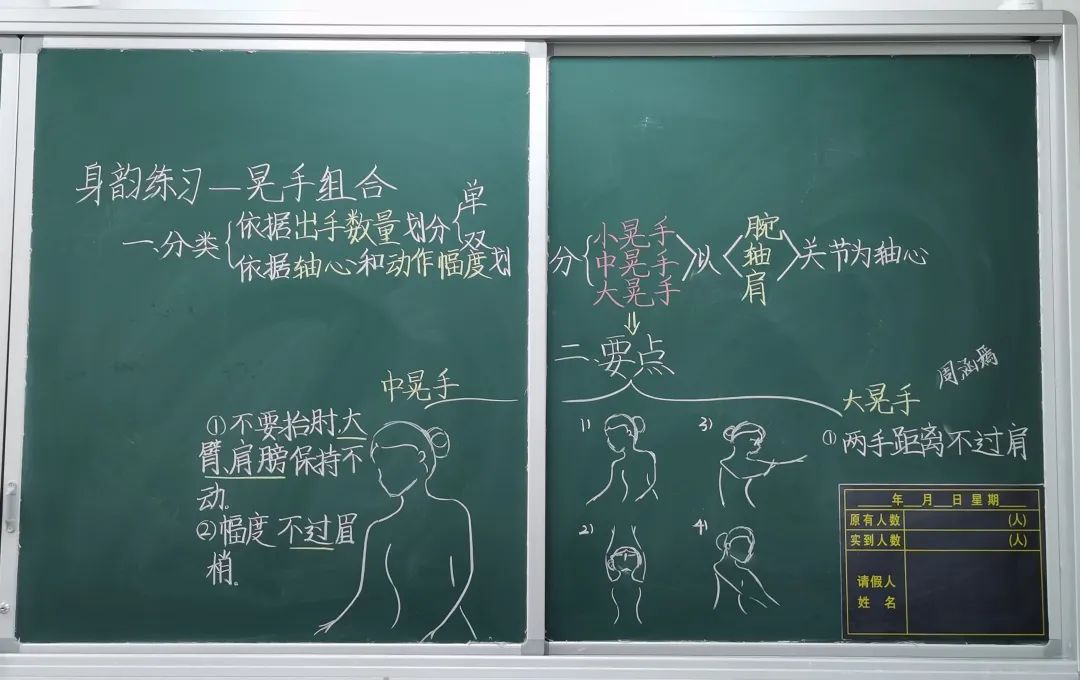 身韵练习—晃手组合
一.分类
依据出手数量划分 单 双
依据轴心和动作幅度划分 小晃手 中晃手 大晃手 以 腕 轴 肩 关节为轴心
二.要点
周涵
中晃手
①不要抬肘.大
臂、肩膀保持不
动。
②幅度不过眉
梢。
1)
2)
3)
4)
大晃手
①两手距离不过肩
年 月 日 星期
原有人数 (人)
实到人数 (人)
请假人
姓 名